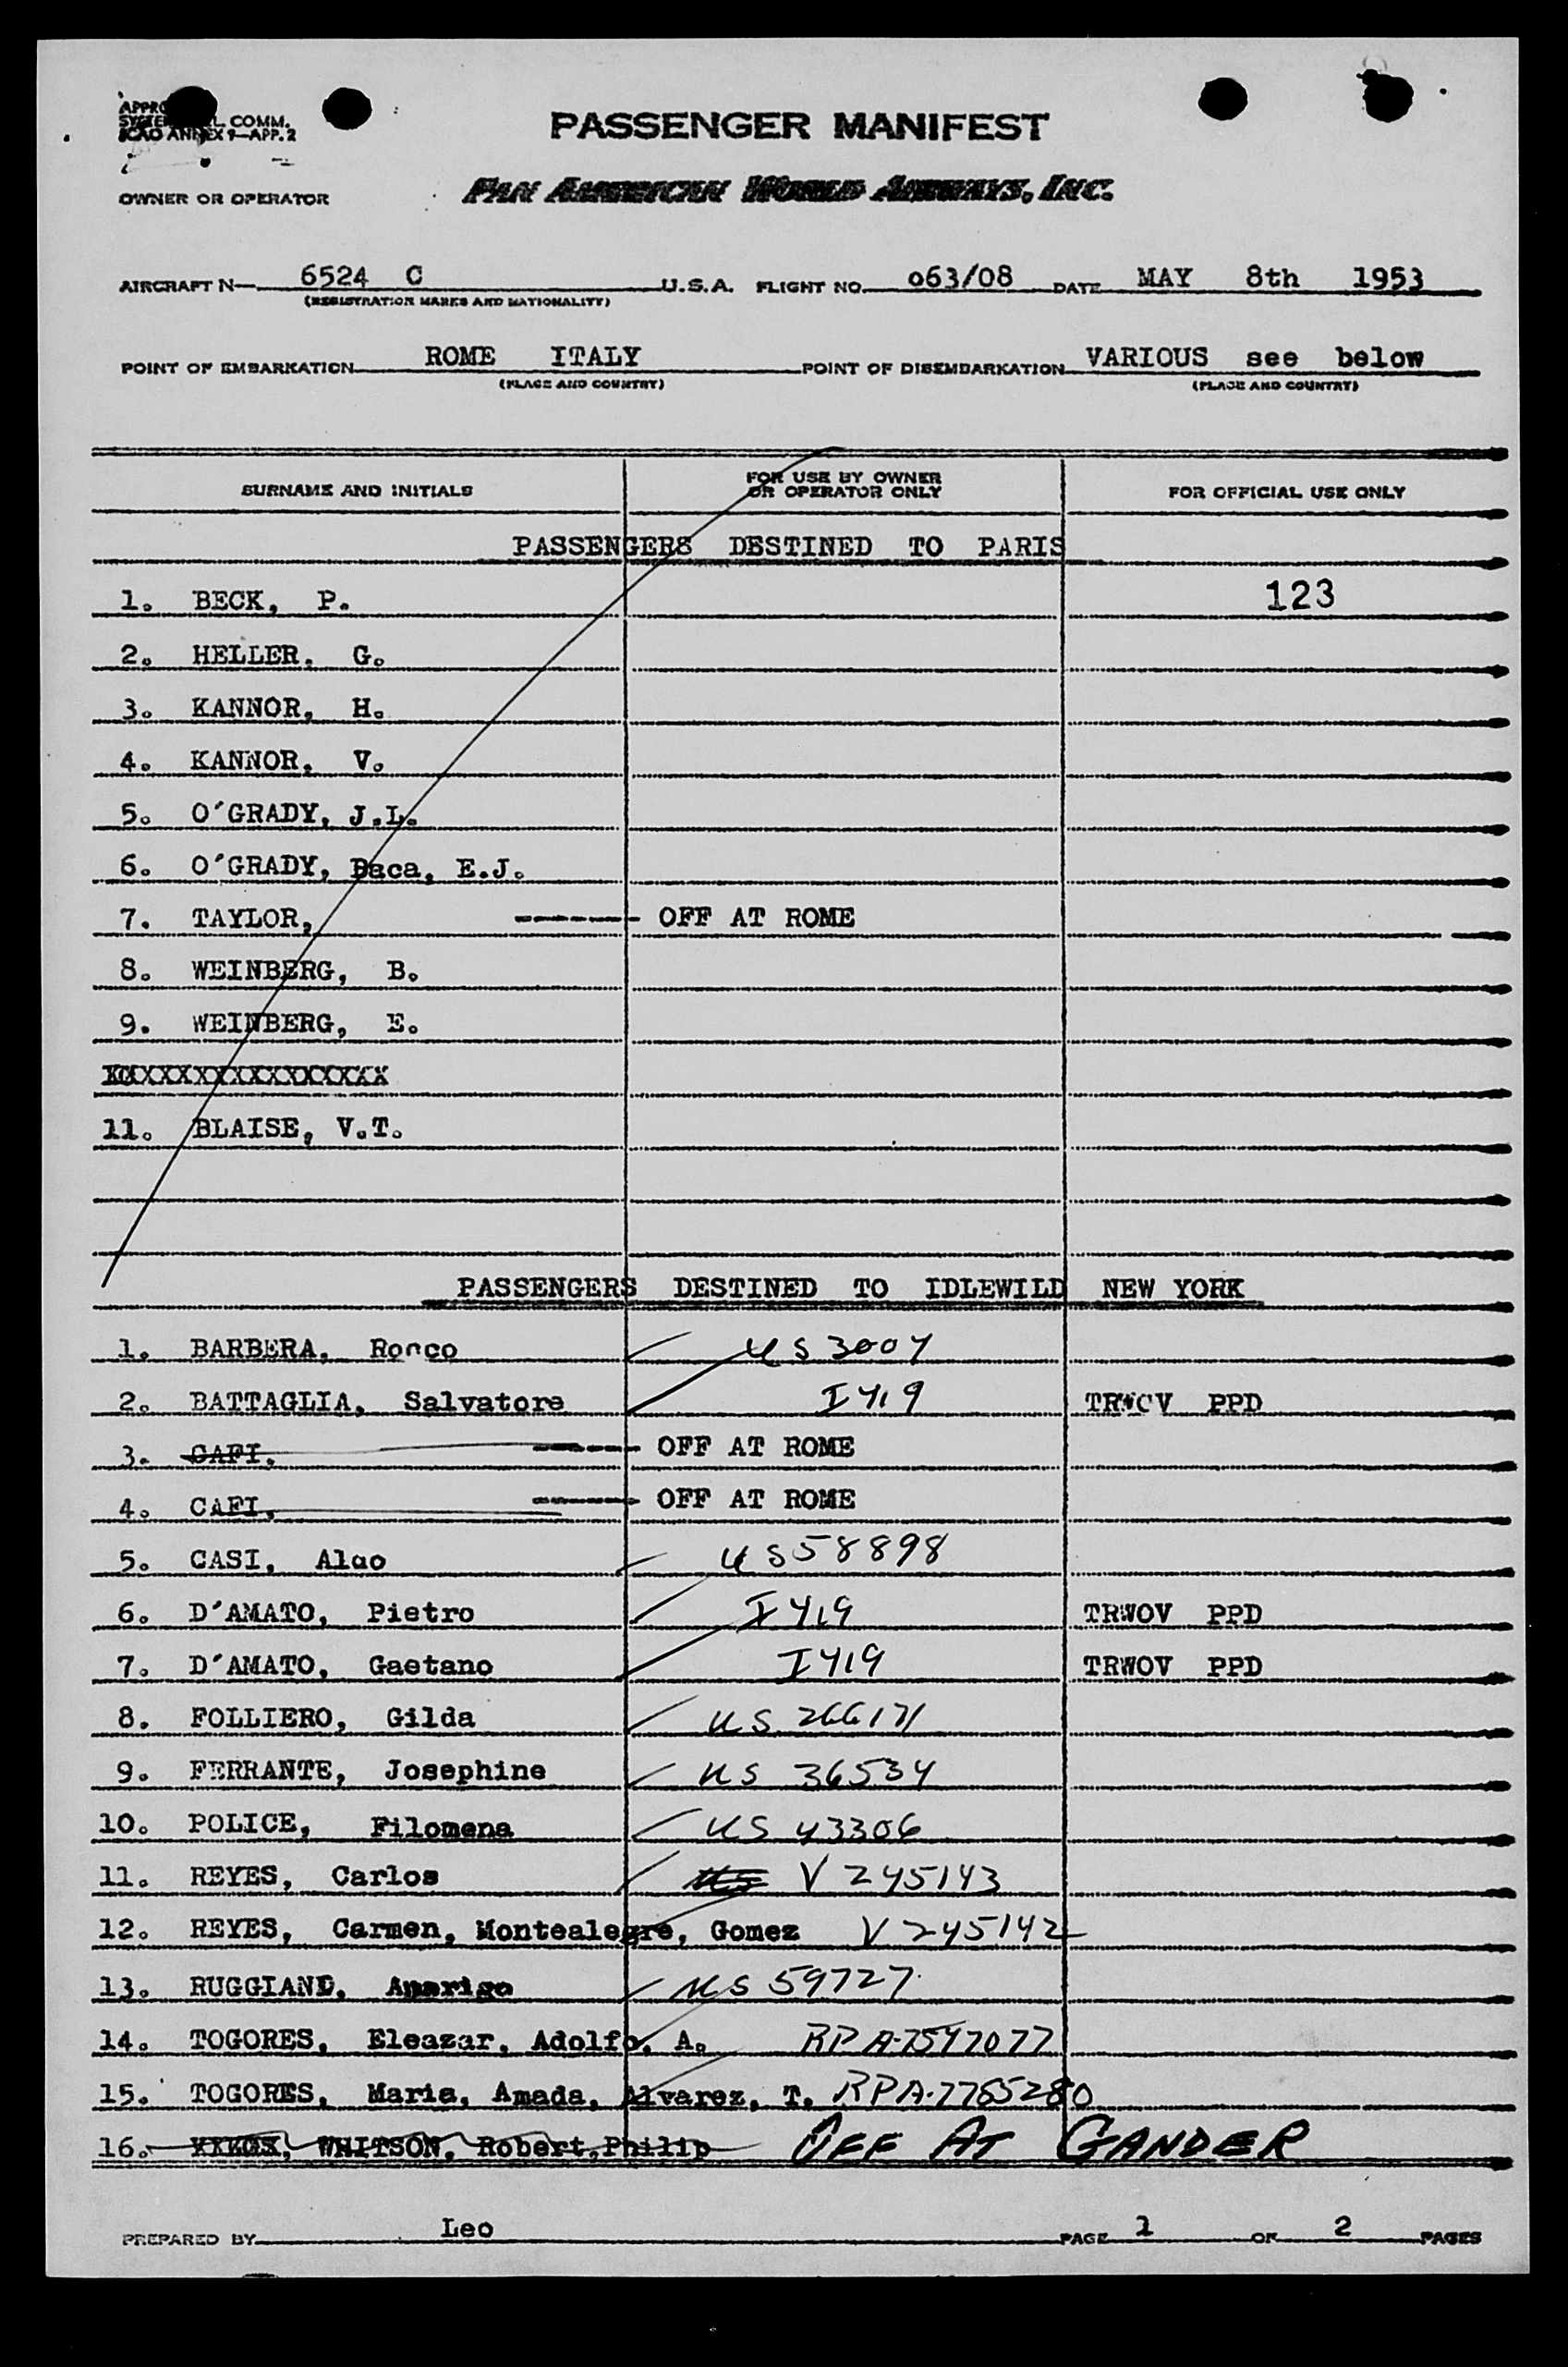 APPRO
SYSTEM L. COMM.
ICAO ANNEX 9—APP. 2
PASSENGER MANIFEST
OWNER OR OPERATOR PAN AMERICAN WORLD AIRWAYS, INC.
AIRCRAFT N— 6524 C U.S.A. FLIGHT NO. 063/08 DATE MAY 8th 1953
(REGISTRATION MARKS AND NATIONALITY)
POINT OF EMBARKATION ROME ITALY POINT OF DISEMBARKATION VARIOUS see below
(PLACE AND COUNTRY) (PLACE AND COUNTRY)
SURNAME AND INITIALS FOR USE BY OWNER OR OPERATOR ONLY FOR OFFICIAL USE ONLY
PASSENGERS DESTINED TO PARIS
1. BECK, P. 123
2. HELLER, G.
3. KANNOR, H.
4. KANNOR, V.
5. O'GRADY, J.L.
6. O'GRADY, Baca, E.J.
7. TAYLOR, ------- OFF AT ROME
8. WEINBERG, B.
9. WEINBERG, E.
11. BLAISE, V.T.
PASSENGERS DESTINED TO IDLEWILD NEW YORK
1. BARBERA, Rocco US 3004
2. BATTAGLIA, Salvatore I 419 TRWOV PPD
3. CAFI, ------- OFF AT ROME
4. CAFI, ------- OFF AT ROME
5. CASI, Aldo US 58898
6. D'AMATO, Pietro I 419 TRWOV PPD
7. D'AMATO, Gaetano I 419 TRWOV PPD
8. FOLLIERO, Gilda US 266171
9. FERRANTE, Josephine US 36534
10. POLICE, Filomena US 43306
11. REYES, Carlos US V 245143
12. REYES, Carmen, Montealegre, Gomez V 245142
13. RUGGIANO, Amerigo US 59727
14. TOGORES, Eleazar, Adolfo, A. RP A-7547077
15. TOGORES, Maria, Amada, Alvarez, T. RP A-7785280
16. WHITSON, Robert, Philip OFF AT GANDER
PREPARED BY Leo PAGE 1 OF 2 PAGES